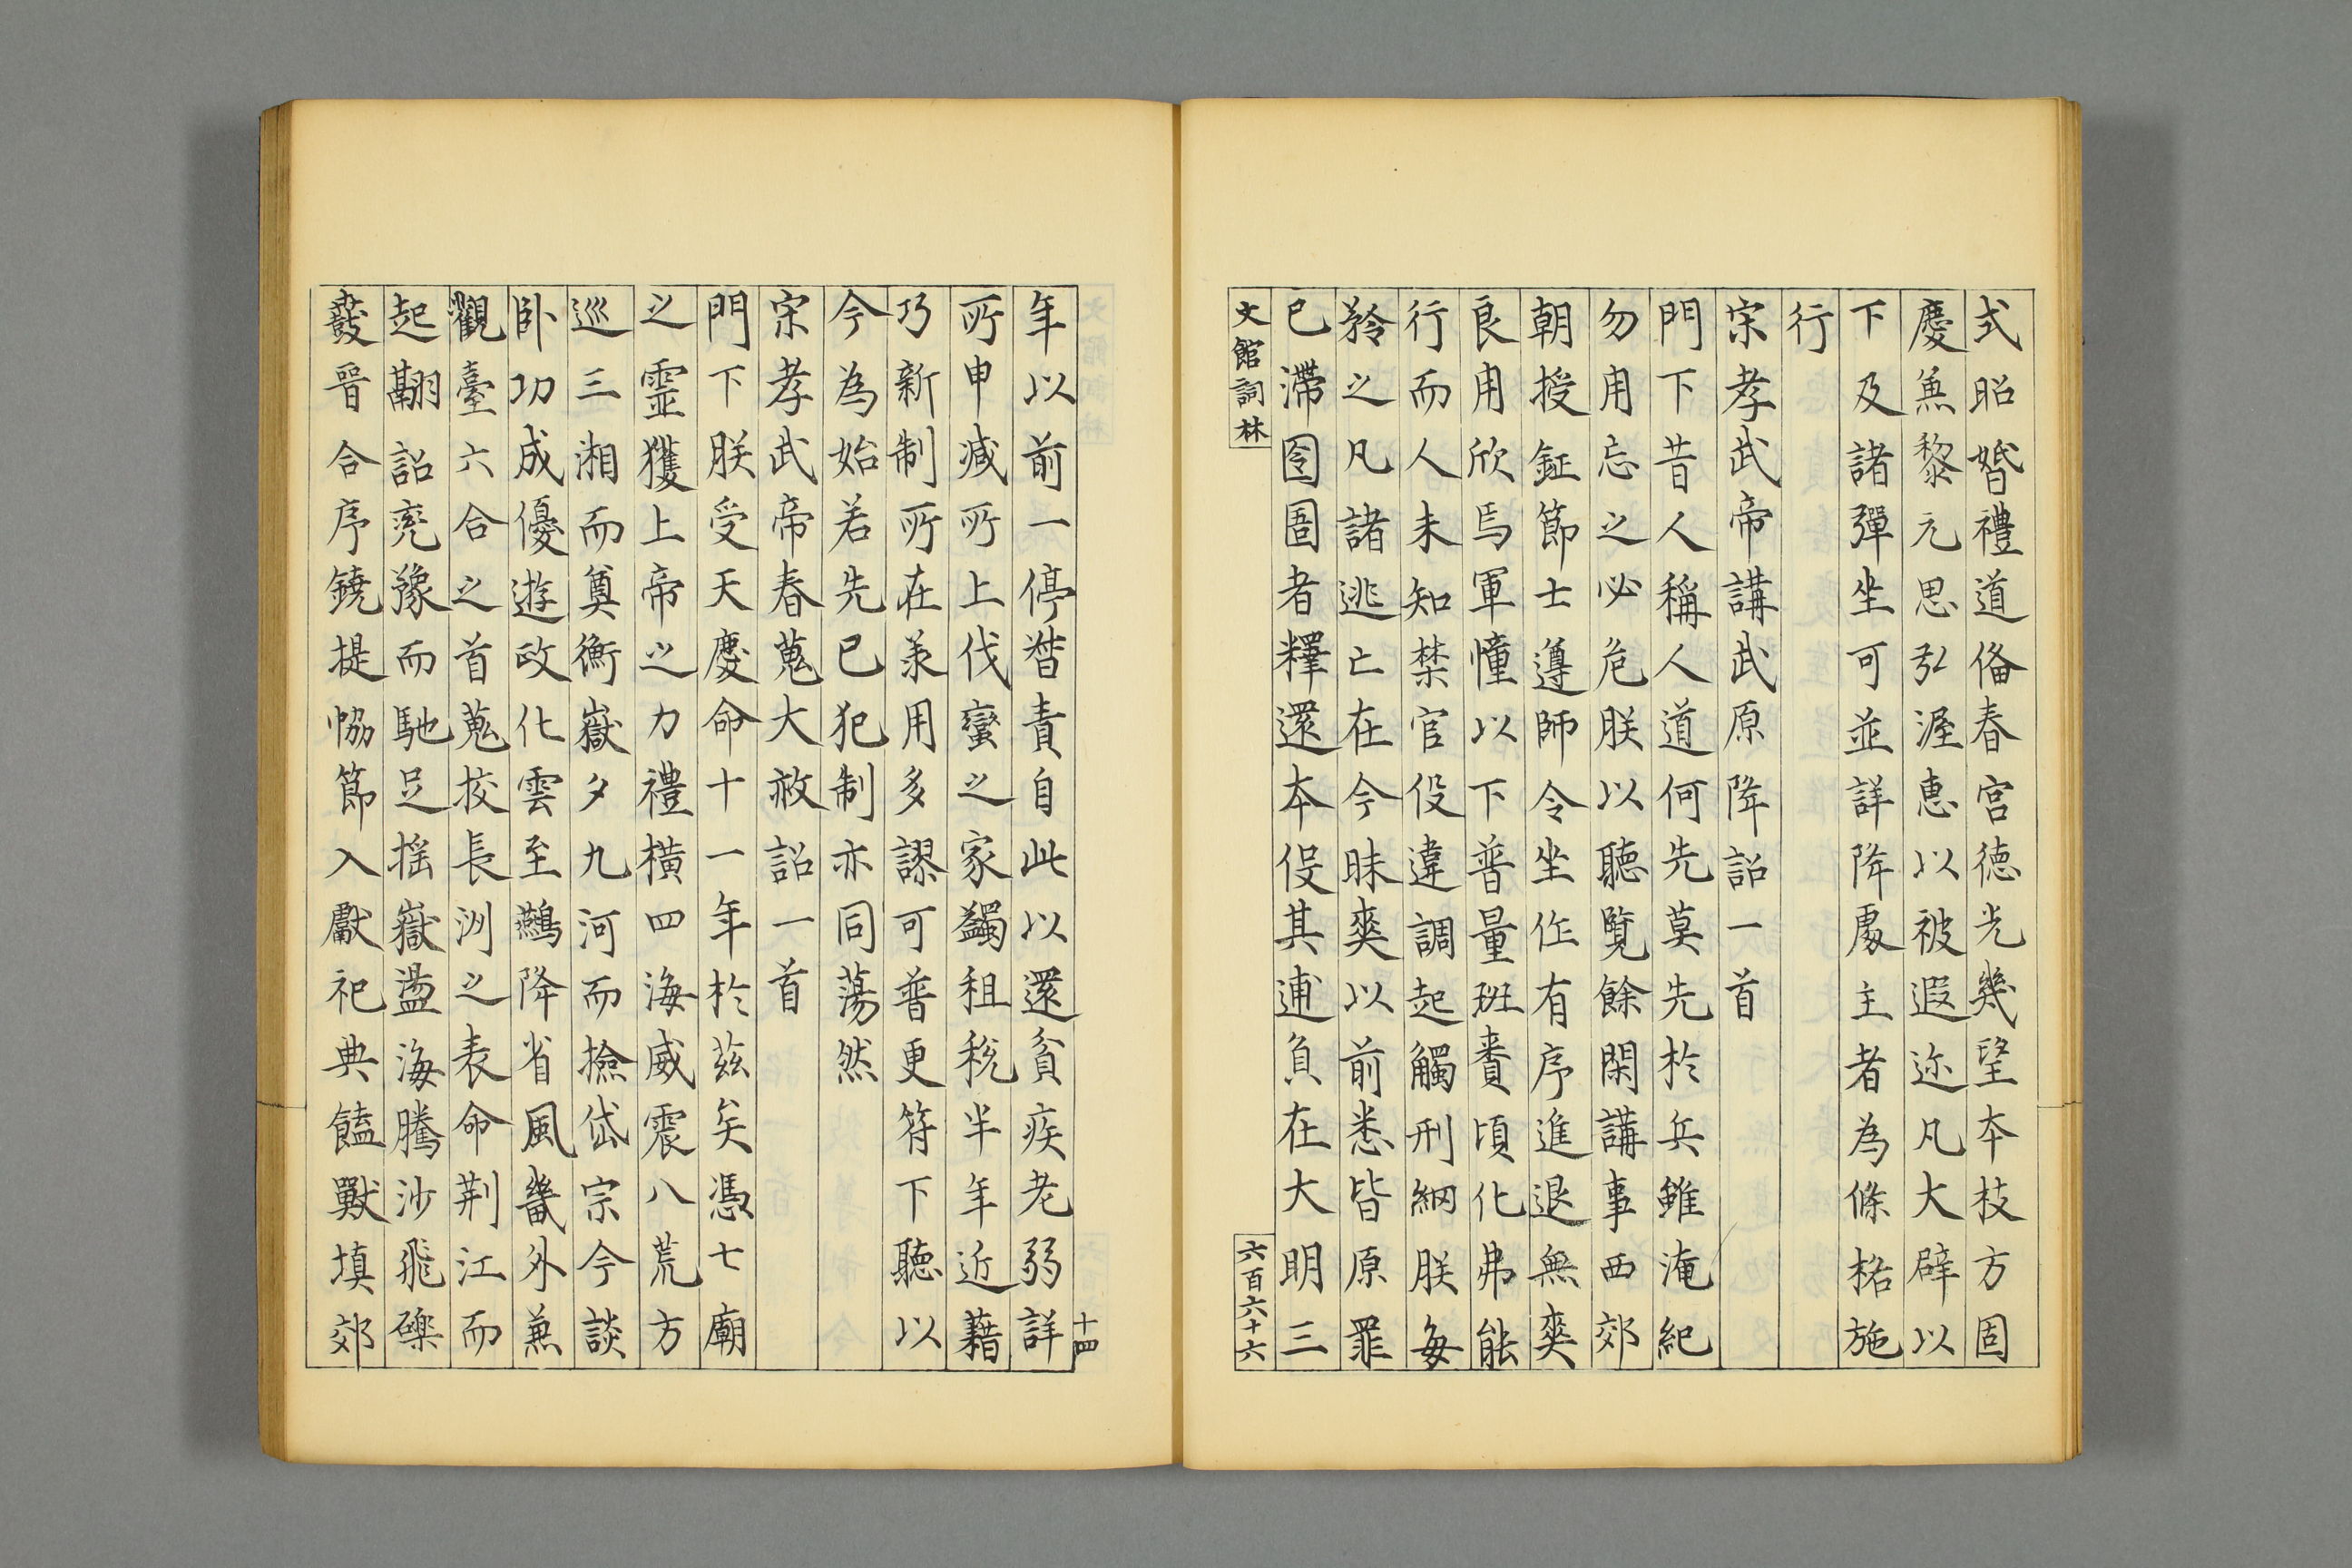 式昭婚禮道俻春宮徳光幾望本枝方固
慶無黎元思弘渥恵以被遐迩凡大辟以
下及諸彈坐可並詳降處主者為條格施
行
宋孝武帝講武原降詔一首
門下昔人稱人道何先莫先於兵雖淹紀
勿用忘之必危朕以聽覽餘閑講事西郊
朝授鉦節士遵師令坐作有序進退無爽
良用欣焉軍幢以下普量班賚頃化弗能
行而人未知禁官役違調起觸刑網朕每
矜之凡諸逃亡在今昧爽以前悉皆原罪
已滯囹圄者釋還本役其逋負在大明三
文館詞林
六百六十六
十四
年以前一停瞀責自此以還貧疾老弱詳
所申减所上伐蠻之家蠲租税半年近藉
巧新制所在承用多謬可普更符下聽以
今為始若先已犯制亦同蕩然
宋孝武帝春蒐大赦詔一首
門下朕受天慶命十一年於茲矣憑七廟
之靈獲上帝之力禮横四海威震八荒方
巡三湘而奠衡嶽夕九河而撿岱宗今談
卧功成優遊政化雲至鷰降省風畿外兼
觀臺六合之首蒐挍長洲之表命荆江而
起翽詔兖豫而馳足揺嶽盪海騰沙飛礫
鼖晉合序鐃提恊節入獻祀典饁獸填郊